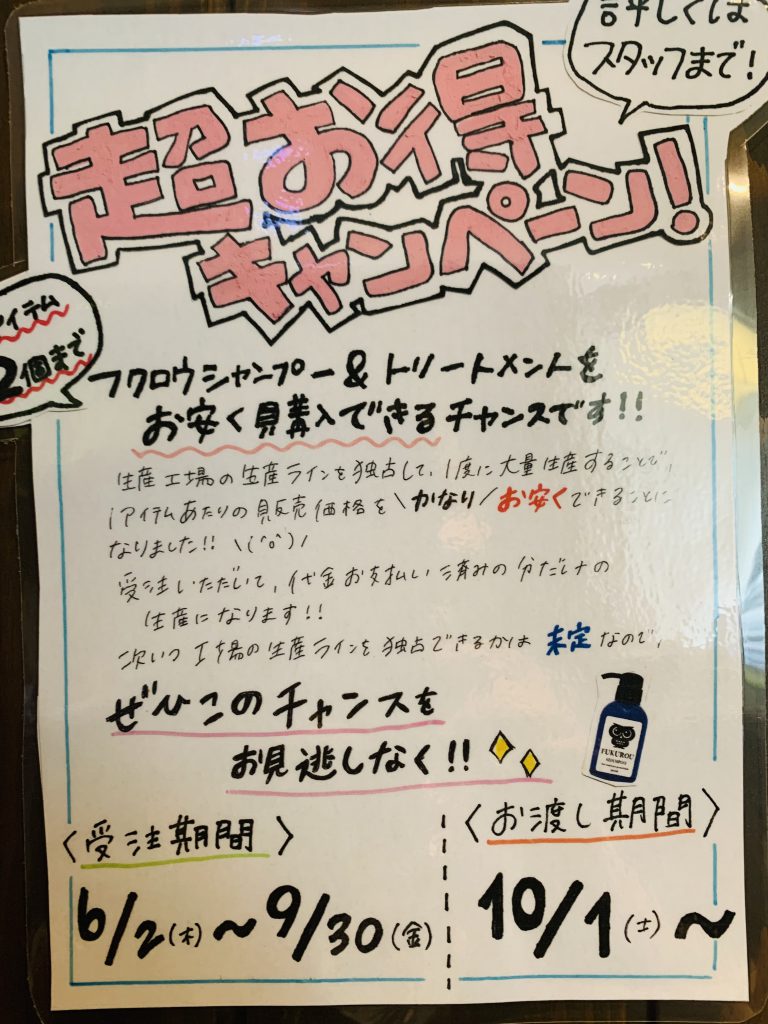 詳しくは
スタッフまで!
超お得
キャンペーン!
アイテム
2個まで
フクロウシャンプー&トリートメントを
お安く購入できるチャンスです!!
生産工場の生産ラインを独占して、1度に大量生産することで、
1アイテムあたりの販売価格を\かなり/お安くできることに
なりました!! \(^o^)/
受注いただいて、代金お支払い済みの分だけの
生産になります!!
次いつ工場の生産ラインを独占できるかは 未定 なので、
ぜひこのチャンスを
お見逃しなく!!
FUKUROU
SHAMPOO
〈受注期間〉
〈お渡し期間〉
6/2(木)〜9/30(金)
10/1(土)〜